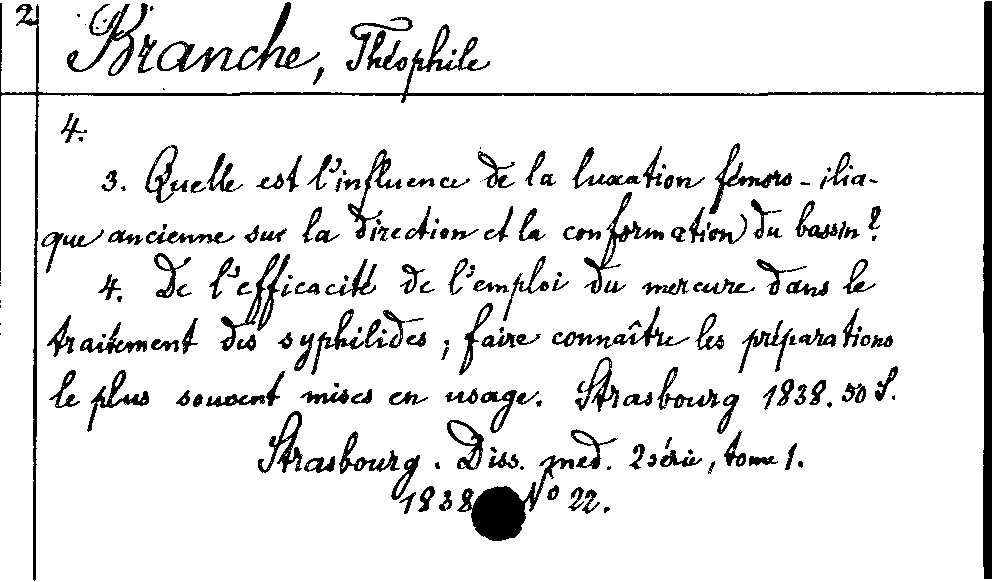 2
Branche, Théophile
4.
3. Quelle est l'influence de la luxation fémoro-ilia-
que ancienne sur la direction et la conformation du bassin?
4. De l'efficacité de l'emploi du mercure dans le
traitement des syphilides; faire connaître les préparations
le plus souvent mises en usage. Strasbourg 1838. 50 S.
Strasbourg. Diss. med. 2 série, tome 1.
1838 No 22.